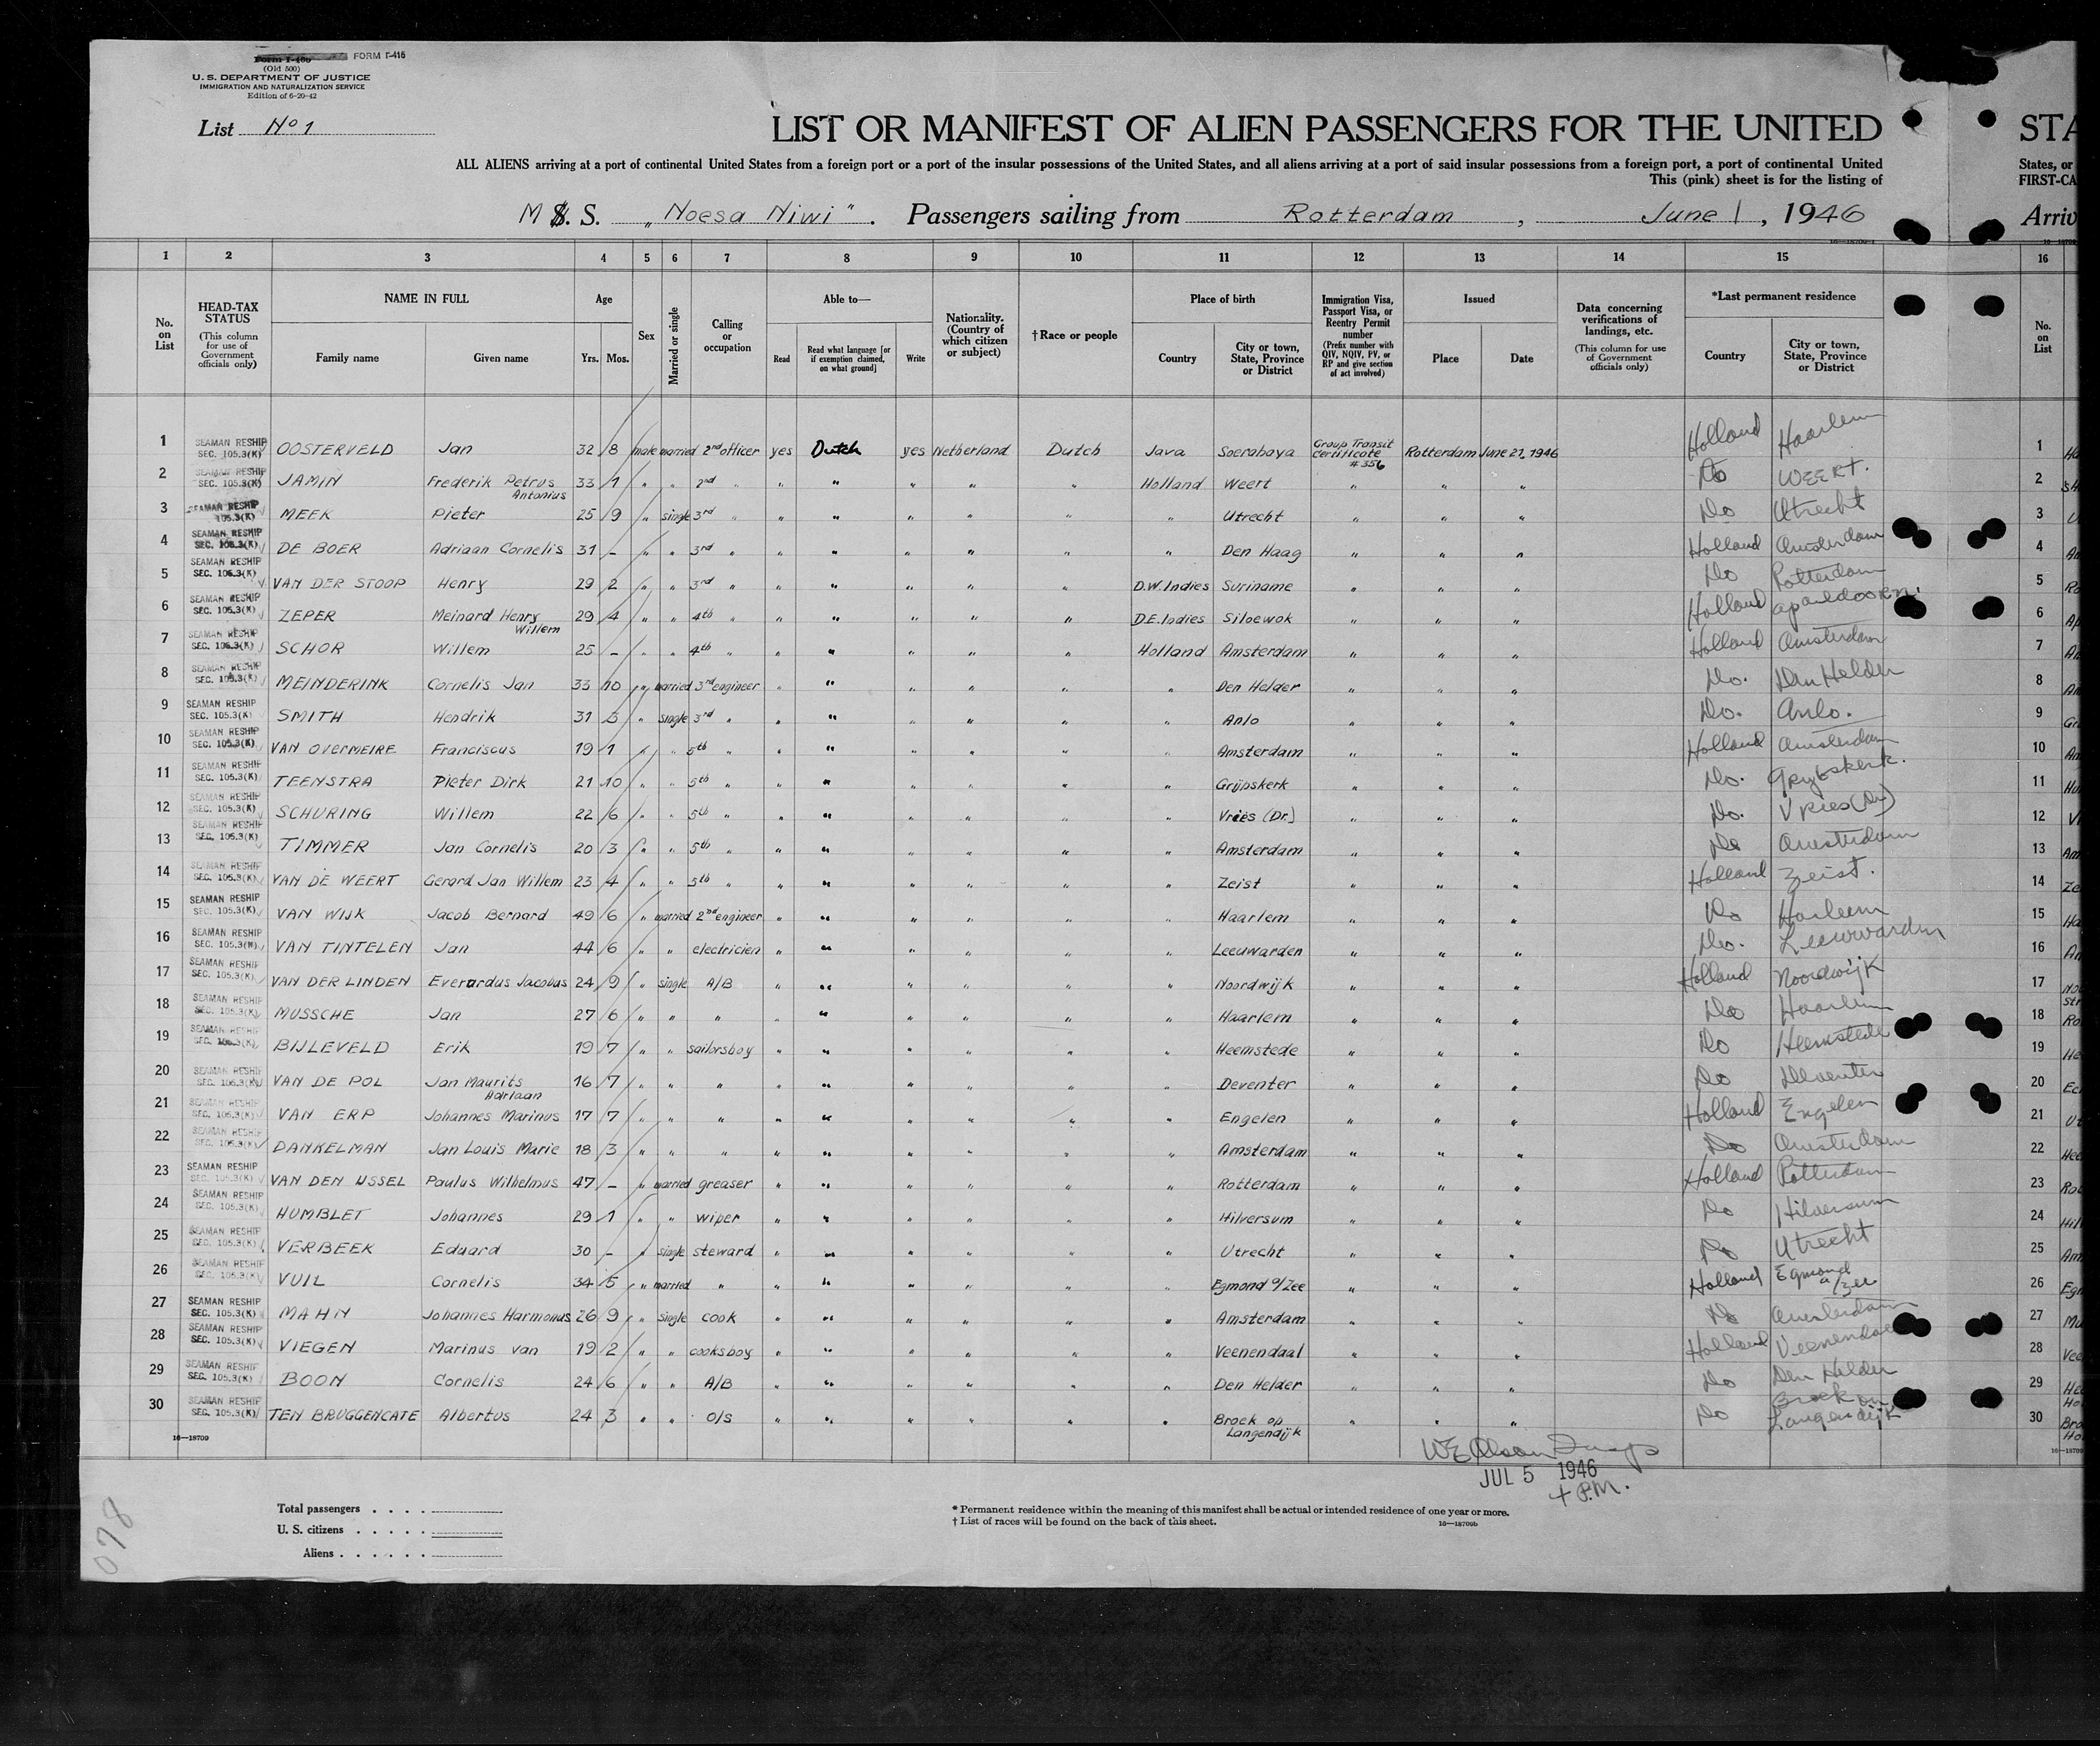 Form I-466 FORM I-415
(Old 500)
U. S. DEPARTMENT OF JUSTICE
IMMIGRATION AND NATURALIZATION SERVICE
Edition of 6-20-42
List No 1
LIST OR MANIFEST OF ALIEN PASSENGERS FOR THE UNITED STA
ALL ALIENS arriving at a port of continental United States from a foreign port or a port of the insular possessions of the United States, and all aliens arriving at a port of said insular possessions from a foreign port, a port of continental United States, or
This (pink) sheet is for the listing of FIRST-CA
M S. S. "Noesa Niwi". Passengers sailing from Rotterdam, June 1, 1946 Arriv
1 2 3 4 5 6 7 8 9 10 11 12 13 14 15 16
No. on List
HEAD-TAX STATUS (This column for use of Government officials only)
NAME IN FULL Family name Given name
Age Yrs. Mos.
Sex
Married or single
Calling or occupation
Able to— Read Read what language [or if exemption claimed, on what ground] Write
Nationality. (Country of which citizen or subject)
† Race or people
Place of birth Country City or town, State, Province or District
Immigration Visa, Passport Visa, or Reentry Permit number (Prefix number with QIV, NQIV, PV, or RP and give section of act involved)
Issued Place Date
Data concerning verifications of landings, etc. (This column for use of Government officials only)
*Last permanent residence Country City or town, State, Province or District
No. on List
1 SEAMAN RESHIP SEC. 105.3(K) OOSTERVELD Jan 32 8 male married 2nd officer yes Dutch yes Netherland Dutch Java Soerabaya Group Transit Certificate #356 Rotterdam June 21, 1946 Holland Haarlem 1
2 SEAMAN RESHIP SEC. 105.3(K) JAMIN Frederik Petrus Antonius 33 1 " " 2nd " " " " " " Holland Weert " " " Do WEERT. 2
3 SEAMAN RESHIP 105.3(K) MEEK Pieter 25 9 " single 3rd " " " " " " " Utrecht " " " Do Utrecht 3
4 SEAMAN RESHIP SEC. 105.3(K) DE BOER Adriaan Cornelis 31 - " " 3rd " " " " " " " Den Haag " " " Holland Amsterdam 4
5 SEAMAN RESHIP SEC. 105.3(K) VAN DER STOOP Henry 29 2 " " 3rd " " " " " " D.W. Indies Suriname " " " Do Rotterdam 5
6 SEAMAN RESHIP SEC. 105.3(K) ZEPER Meinard Henry Willem 29 4 " " 4th " " " " " " D.E. Indies Siloewok " " " Holland apeldoorn. 6
7 SEAMAN RESHIP SEC. 105.3(K) SCHOR Willem 25 - " " 4th " " " " " " Holland Amsterdam " " " Holland Amsterdam 7
8 SEAMAN RESHIP SEC. 105.3(K) MEINDERINK Cornelis Jan 33 10 " married 3rd engineer " " " " " " Den Helder " " " Do. Den Helder 8
9 SEAMAN RESHIP SEC. 105.3(K) SMITH Hendrik 31 3 " single 3rd " " " " " " " Anlo " " " Do. Anlo. 9
10 SEAMAN RESHIP SEC. 105.3(K) VAN OVERMEIRE Franciscus 19 1 " " 5th " " " " " " " Amsterdam " " " Holland Amsterdam 10
11 SEAMAN RESHIP SEC. 105.3(K) TEENSTRA Pieter Dirk 21 10 " " 5th " " " " " " " Grijpskerk " " " Do. Grypskerk. 11
12 SEAMAN RESHIP SEC. 105.3(K) SCHURING Willem 22 6 " " 5th " " " " " " " Vries (Dr.) " " " Do. Vries (Dr) 12
13 SEAMAN RESHIP SEC. 105.3(K) TIMMER Jan Cornelis 20 3 " " 5th " " " " " " " Amsterdam " " " Do Amsterdam 13
14 SEAMAN RESHIP SEC. 105.3(K) VAN DE WEERT Gerard Jan Willem 23 4 " " 5th " " " " " " " Zeist " " " Holland Zeist. 14
15 SEAMAN RESHIP SEC. 105.3(K) VAN WIJK Jacob Bernard 49 6 " married 2nd engineer " " " " " " Haarlem " " " Do Harleem 15
16 SEAMAN RESHIP SEC. 105.3(K) VAN TINTELEN Jan 44 6 " " electricien " " " " " " Leeuwarden " " " Do. Leeuwarden 16
17 SEAMAN RESHIP SEC. 105.3(K) VAN DER LINDEN Everardus Jacobus 24 9 " single A/B " " " " " " Noordwijk " " " Holland Noordwijk 17
18 SEAMAN RESHIP SEC. 105.3(K) MUSSCHE Jan 27 6 " " " " " " " " " Haarlem " " " Do Haarlem 18
19 SEAMAN RESHIP SEC. 105.3(K) BIJLEVELD Erik 19 7 " " sailorsboy " " " " " " Heemstede " " " Do Heemstede 19
20 SEAMAN RESHIP SEC. 105.3(K) VAN DE POL Jan Maurits Adriaan 16 7 " " " " " " " " " Deventer " " " Do Deventer 20
21 SEAMAN RESHIP SEC. 105.3(K) VAN ERP Johannes Marinus 17 7 " " " " " " " " " Engelen " " " Holland Engelen 21
22 SEAMAN RESHIP SEC. 105.3(K) DANKELMAN Jan Louis Marie 18 3 " " " " " " " " " Amsterdam " " " Do Amsterdam 22
23 SEAMAN RESHIP SEC. 105.3(K) VAN DEN IJSSEL Paulus Wilhelmus 47 - " married greaser " " " " " " Rotterdam " " " Holland Rotterdam 23
24 SEAMAN RESHIP SEC. 105.3(K) HUMBLET Johannes 29 1 " " wiper " " " " " " Hilversum " " " Do Hilversum 24
25 SEAMAN RESHIP SEC. 105.3(K) VERBEEK Eduard 30 - " single steward " " " " " " Utrecht " " " Do Utrecht 25
26 SEAMAN RESHIP SEC. 105.3(K) VUIL Cornelis 34 5 " married " " " " " " " Egmond a/Zee " " " Holland Egmond a/Zee 26
27 SEAMAN RESHIP SEC. 105.3(K) MAHN Johannes Harmonus 26 9 " single cook " " " " " " Amsterdam " " " Do Amsterdam 27
28 SEAMAN RESHIP SEC. 105.3(K) VIEGEN Marinus van 19 2 " " cooksboy " " " " " " Veenendaal " " " Holland Veenendaal 28
29 SEAMAN RESHIP SEC. 105.3(K) BOON Cornelis 24 6 " " A/B " " " " " " Den Helder " " " Do Den Helder 29
30 SEAMAN RESHIP SEC. 105.3(K) TEN BRUGGENCATE Albertus 24 3 " " O/S " " " " " " Broek op Langendijk " " " Do Broek on Langendijk 30
16—18709
JUL 5 1946
P.M.
Total passengers . . . .
U. S. citizens . . . . .
Aliens . . . . . .
* Permanent residence within the meaning of this manifest shall be actual or intended residence of one year or more.
† List of races will be found on the back of this sheet. 16—18709b
078